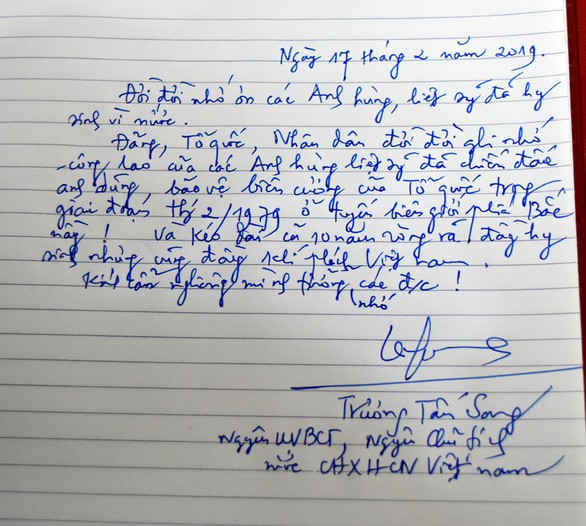 Ngày 17 tháng 2 năm 2019.
Đời đời nhớ ơn các Anh hùng, liệt sỹ đã hy
sinh vì nước.
Đảng, Tổ quốc, Nhân dân đời đời ghi nhớ
công lao của các Anh hùng liệt sỹ đã chiến đấu
anh dũng, bảo vệ biên cương của Tổ quốc trong
giai đoạn th 2/1979 ở tuyến biên giới phía Bắc
này! Và kéo dài cả 10 năm ròng rã đầy hy
sinh nhưng cũng đầy khí phách Việt nam.
Kính cẩn nghiêng mình thương nhớ các đ/c!
Trương Tấn Sang
Nguyên UVBCT, Nguyên Chủ tịch
nước CHXHCN Việt nam